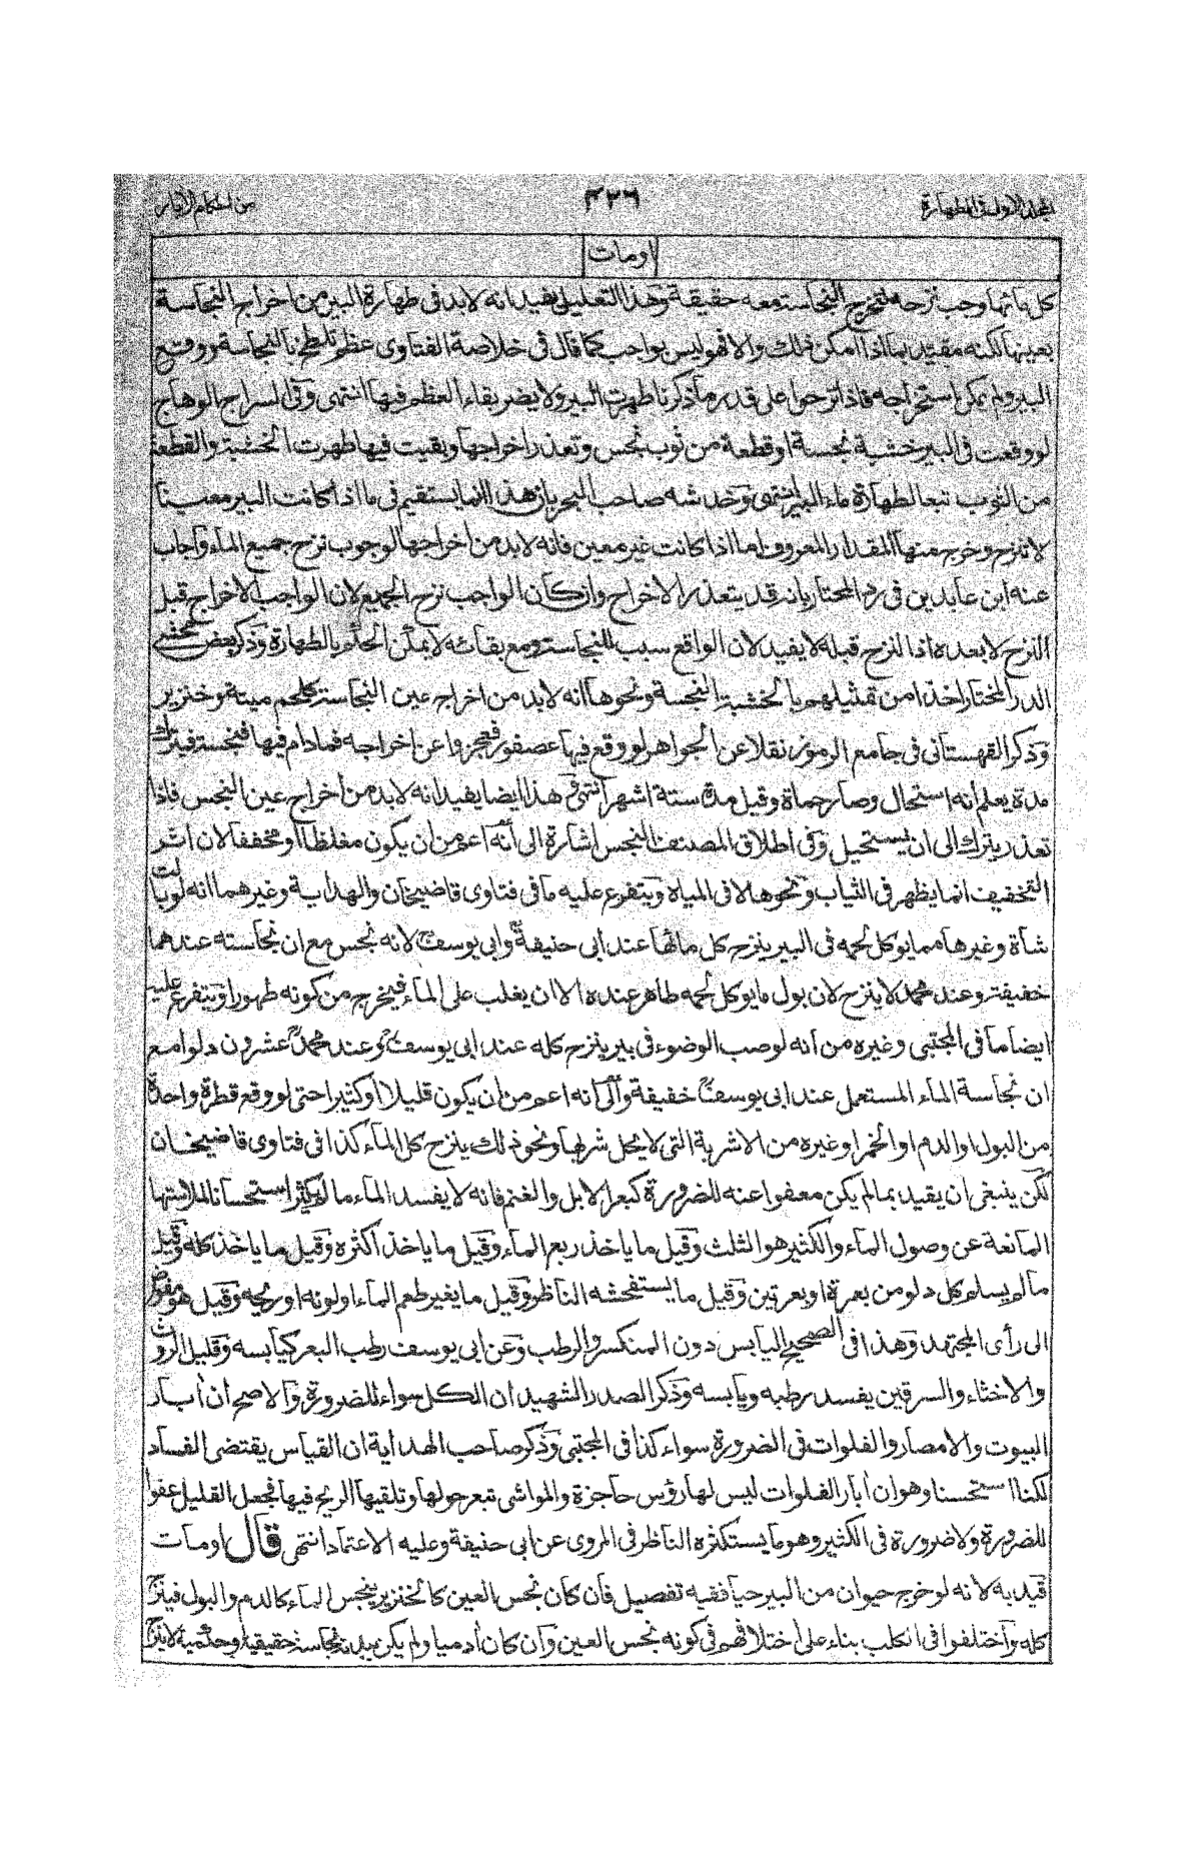 المجلد الاول فى الطهارة ٤٢٦ من احكام الابار
اومات
كل مائها وجب نزحه لتخرج النجاسة معه حقيقة وهذا التعليل يفيد انه لابد فى طهارة البير من اخراج النجاسة
بعينها لكنه مقيد بما اذا امكن ذلك والا فهو ليس بواجب كما قال فى خلاصة الفتاوى عظم تلطخ بالنجاسة ووقع فى
البير ولم يمكن استخراجه فاذا نزحوا على قدر ما ذكرنا طهرت البير ولا يضر بقاء العظم فيها انتهى وفى السراج الوهاج
لو وقعت فى البير خشبة نجسة او قطعة من ثوب نجس وتعذر اخراجها وبقيت فيها طهرت الخشبة والقطعة
من الثوب تبعا لطهارة ماء البير انتهى وخدشه صاحب البحر بان هذا انما يستقيم فى ما اذا كانت البير معينا
لا تنزح وخرج منها المقدار المعروف اما اذا كانت غير معين فانه لابد من اخراجها لوجوب نزح جميع الماء واجاب
عنه ابن عابدين فى رد المحتار بانه قد يتعذر الاخراج وان كان الواجب نزح الجميع لان الواجب الاخراج قبل
النزح لا بعده اذ النزح قبله لا يفيد لان الواقع سبب للنجاسة ومع بقائه لا يمكن الحكم بالطهارة وذكر بعض محشى
الدر المختار اخذا من تمثيلهم بالخشبة النجسة ونحوها انه لابد من اخراج عين النجاسة كلحم ميتة وخنزير
وذكر القهستانى فى جامع الرموز نقلا عن الجواهر لو وقع فيها عصفور فعجزوا عن اخراجه فمادام فيها فنجسة فيترك
مدة يعلم انه استحال وصار حماة وقيل مدة ستة اشهر انتهى وهذا ايضا يفيد انه لابد من اخراج عين النجس فاذا
تعذر يترك الى ان يستحيل وفى اطلاق المصنف النجس اشارة الى انه اعم من ان يكون مغلظا او مخففا لان اثر
التخفيف انما يظهر فى الثياب ونحوها لا فى المياه ويتفرع عليه ما فى فتاوى قاضيخان والهداية وغيرهما انه لو بالت
شاة وغيرها مما يوكل لحمه فى البير ينزح كل مائها عند ابى حنيفة وابى يوسف لانه نجس مع ان نجاسته عندهما
خفيفة وعند محمد لا ينزح لان بول ما يوكل لحمه طاهر عنده الا ان يغلب على الماء فيخرج من كونه طهورا ويتفرع عليه
ايضا ما فى المجتبى وغيره من انه لو صب الوضوء فى بير ينزح كله عند ابى يوسف وعند محمد عشرون دلوا مع
ان نجاسة الماء المستعمل عند ابى يوسف خفيفة والى انه اعم من ان يكون قليلا او كثيرا حتى لو وقع قطرة واحدة
من البول او الدم او الخمر او غيره من الاشربة التى لا يحل شربها ونحو ذلك ينزح كل الماء كذا فى فتاوى قاضيخان
لكن ينبغى ان يقيد بما لم يكن معفوا عنه للضرورة كبعر الابل والغنم فانه لا يفسد الماء ما لم يكثر استحسانا لللاستها
المانعة عن وصول الماء والكثير هو الثلث وقيل ما ياخذ ربع الماء وقيل ما ياخذ اكثره وقيل ما ياخذ كله وقيل
ما لم يسلم كل دلو من بعرة او بعرتين وقيل ما يستفحشه الناظر وقيل ما يغير طعم الماء او لونه او ريحه وقيل هو مفوض
الى رأى المجتهد وهذا فى الصحيح اليابس دون المنكسر والرطب وعن ابى يوسف رطب البعر كيابسه وقليل الروث
والاخثاء والسرقين يفسد رطبه ويابسه وذكر الصدر الشهيد ان الكل سواء للضرورة والاصح ان ابار
البيوت والامصار والفلوات فى الضرورة سواء كذا فى المجتبى وذكر صاحب الهداية ان القياس يقتضى الفساد
لكنا استحسنا وهو ان ابار الفلوات ليس لها رؤس حاجزة والمواشى تبعر حولها وتلقيها الريح فيها فجعل القليل عفوا
للضرورة ولا ضرورة فى الكثير وهو ما يستكثره الناظر فى المروى عن ابى حنيفة وعليه الاعتماد انتهى قال اومات
قيد به لانه لو خرج حيوان من البير حيا ففيه تفصيل فان كان نجس العين كالخنزير ينجس الماء كالدم والبول فينزح
كله واختلفوا فى الكلب بناء على اختلافهم فى كونه نجس العين وان كان ادميا ولم يكن ببدنه نجاسة حقيقية او حكمية لا ينزح